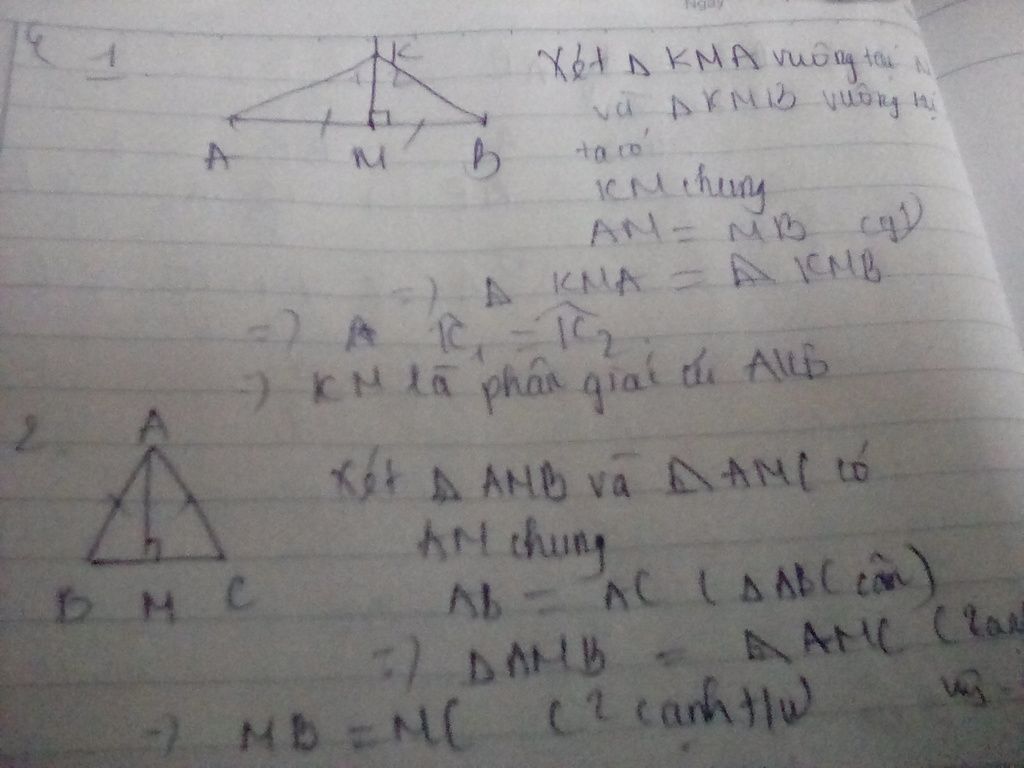 1
K
A M B
Xét Δ KMA vuông tại
và Δ KMB vuông
ta có
KM chung
AM = MB
=> Δ KMA = Δ KMB
=> K̂₁ = K̂₂
=> KM là phân giác AKB
2
A
B M C
Xét Δ AMB và Δ AMC có
AM chung
AB = AC (Δ ABC cân)
=> Δ AMB = Δ AMC
=> MB = MC (2 cạnh t/ư)